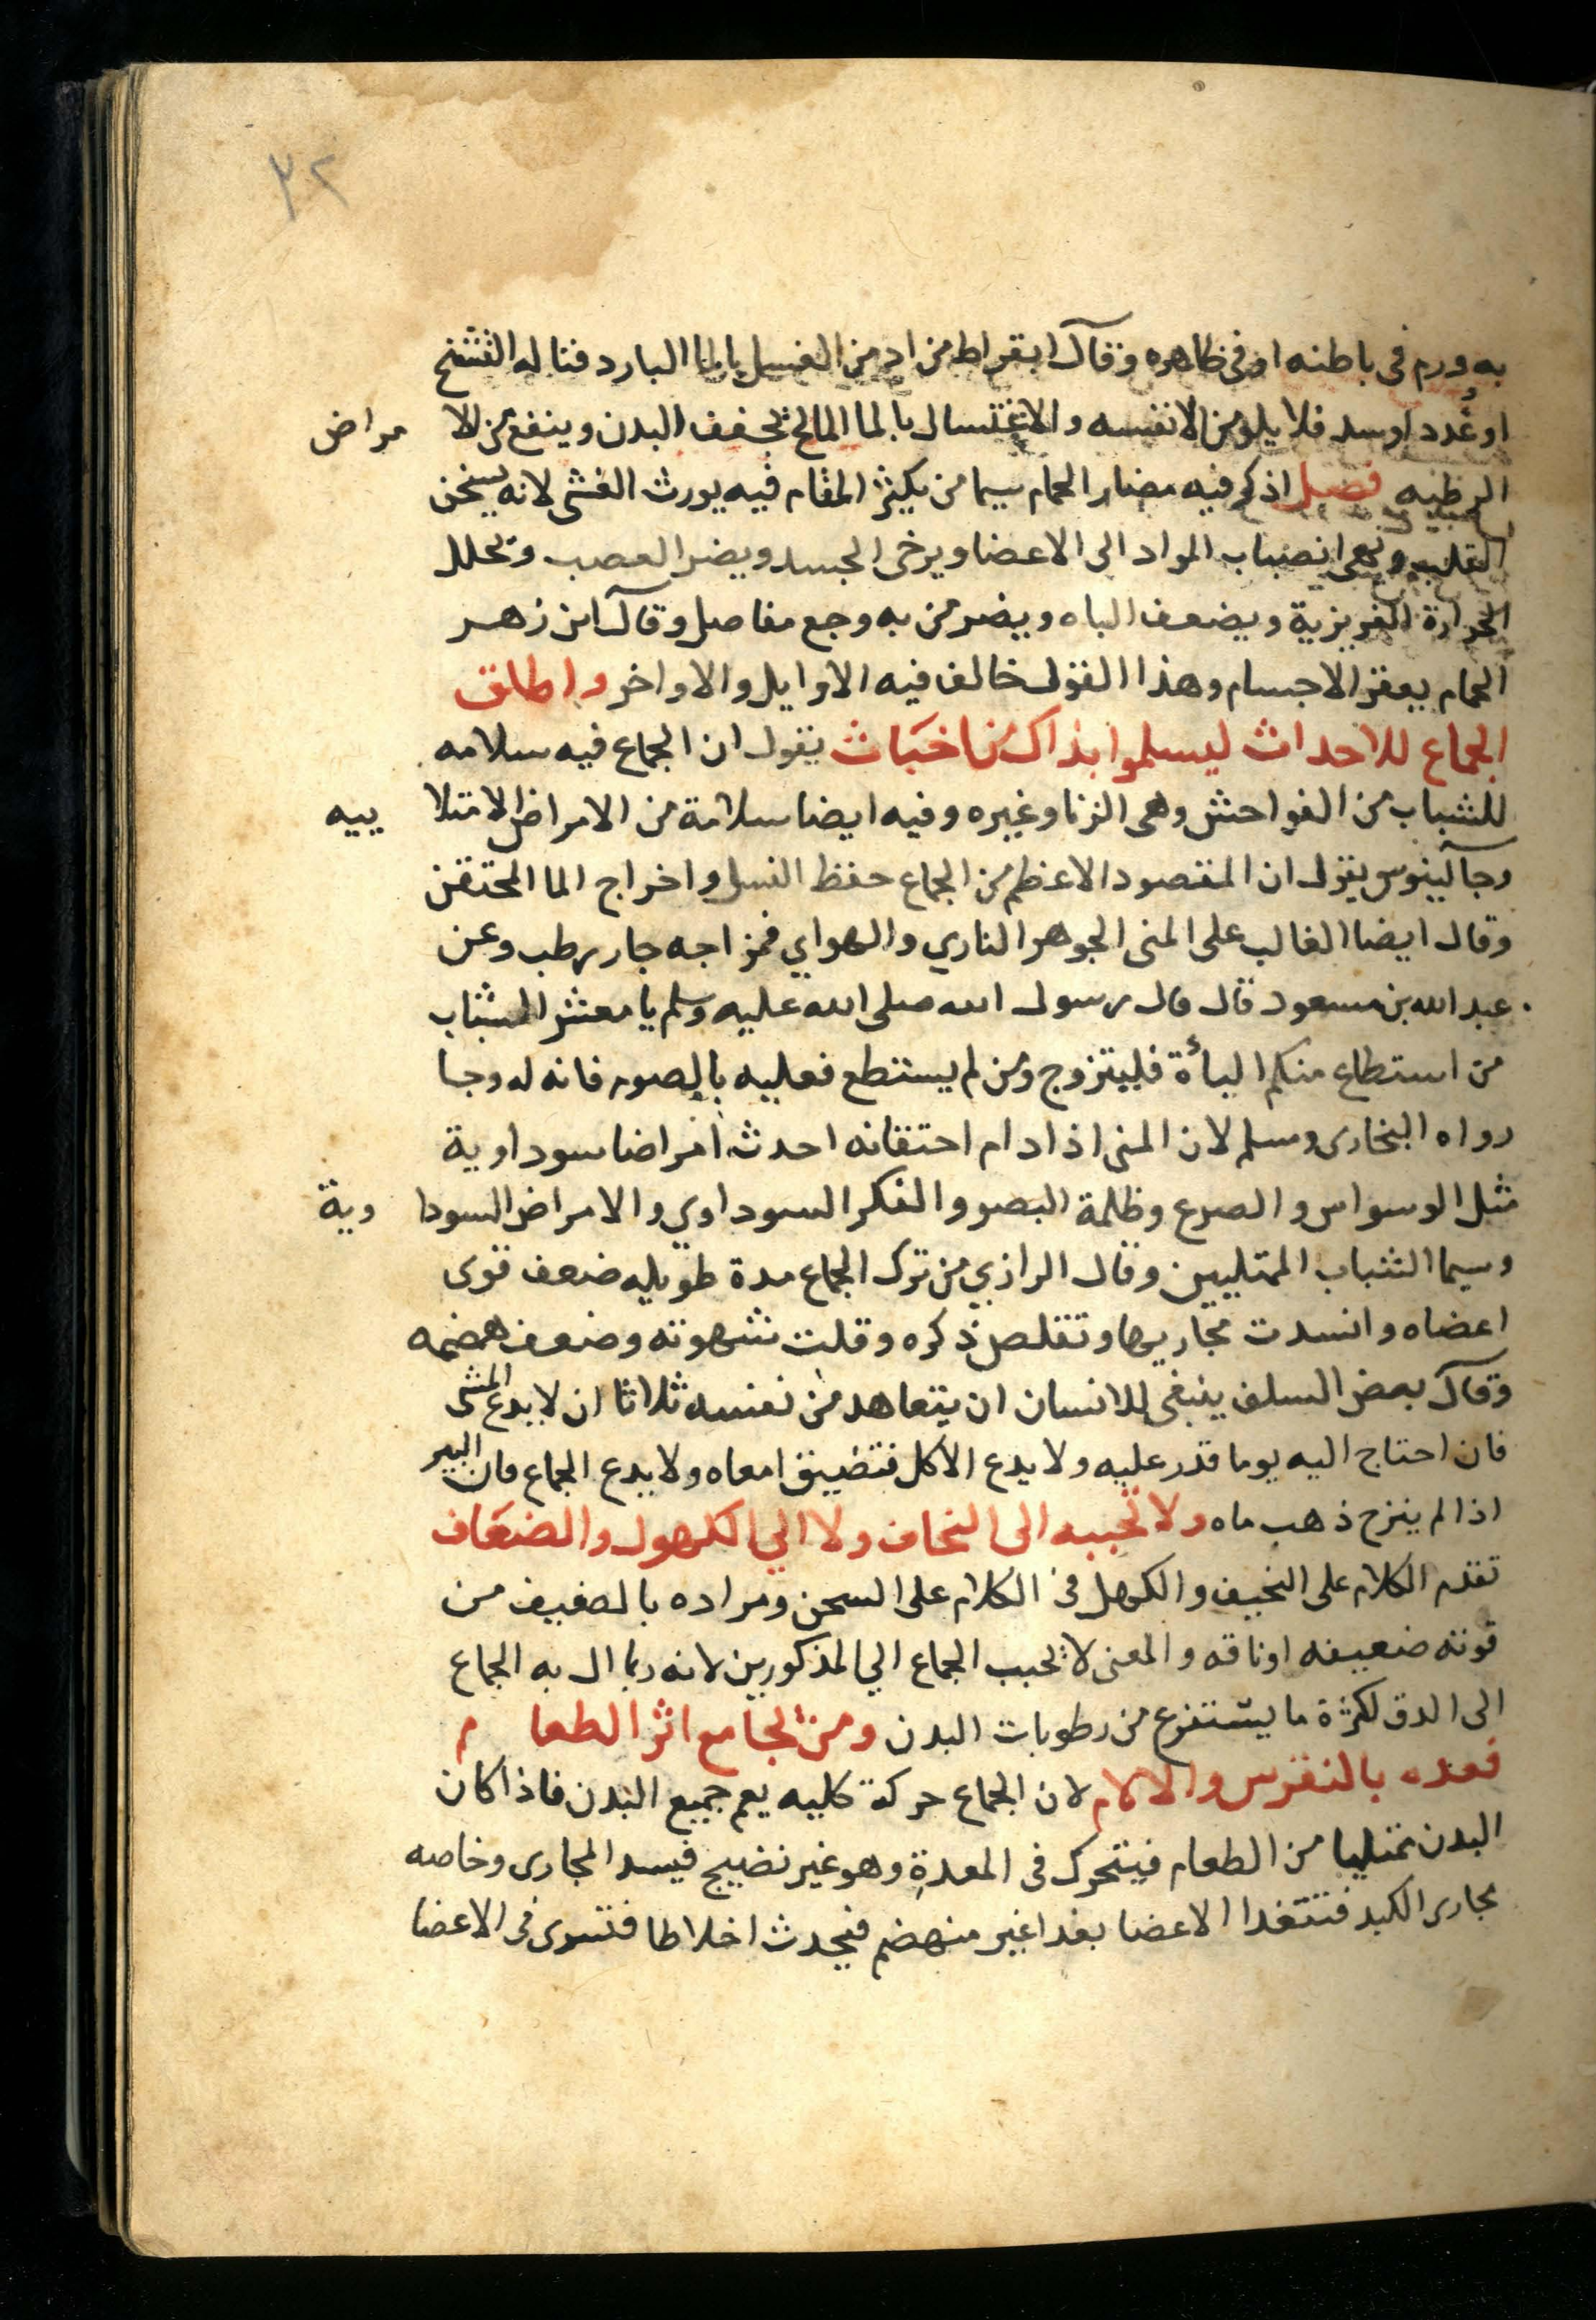 ٣٢
به ورم في باطنه او في ظاهره وقال ابقراط من ادمن الغسل بالما البارد فناله التشنج
او غدد او سدد فلا يلومن الا نفسه والاغتسال بالما المالح يجفف البدن وينفع من الا مراض
الرطبه فصل اذكر فيه مضار الحمام سيما من يكثر المقام فيه يورث الغشى لانه يسخن
القلب انصباب المواد الى الاعضا ويرخى الجسد ويضر العصب ويحلل
الحرارة الغريزية ويضعف الباه ويضر من به وجع مفاصل وقال ابن زهر
الحمام يعفن الاجسام وهذا القول خالف فيه الاوايل والاواخر واطلق
الجماع للاحداث ليسلموا بذاك من اخباث يقول ان الجماع فيه سلامه
للشباب من الفواحش وهى الزنا وغيره وفيه ايضا سلامة من الامراض الامتلا ييه
وجالينوس يقول ان المقصود الاعظم من الجماع حفظ النسل واخراج الما المحتقن
وقال ايضا الغالب على المنى الجوهر الناري والهواي فمزاجه حار رطب وعن
عبد الله بن مسعود قال قال رسول الله صلى الله عليه وسلم يا معشر الشباب
من استطاع منكم البأة فليتزوج ومن لم يستطع فعليه بالصوم فانه له وجا
رواه البخارى ومسلم لان المنى اذا دام احتقانه احدث امراضا سوداوية
مثل الوسواس والصرع وظلمة البصر والفكر السوداوي والامراض السودا وية
وسيما الشباب الممتليين وقال الرازي من ترك الجماع مدة طويله ضعف قوى
اعضاه وانسدت مجاريها وتقلص ذكره وقلت شهوته وضعف هضمه
وقال بعض السلف ينبغى للانسان ان يتعاهد من نفسه ثلاثا ان لا يدع المشى
فان احتاج اليه يوما قدر عليه ولا يدع الاكل فتضيق امعاه ولا يدع الجماع فان البير
اذا لم ينزح ذهب ماه ولا تحببه الى النحاف ولا الي الكهول والضعاف
تقدم الكلام على النحيف والكهل في الكلام على السحن ومراده بالضعيف من
قوته ضعيفه او ناقه والمعنى لا تحبب الجماع الي المذكورين لانه ربما ال به الجماع
الى الدق لكثرة ما يستفرغ من رطوبات البدن ومن يجامع اثر الطعا م
فعده بالنقرس والالام لان الجماع حركة كليه يعم جميع البدن فاذا كان
البدن ممتليا من الطعام فيتحرك في المعدة وهو غير نضيج فيسد المجارى وخاصه
مجارى الكبد فتتغدا الاعضا بغدا غير منهضم فيحدث اخلاطا فتسرى في الاعضا